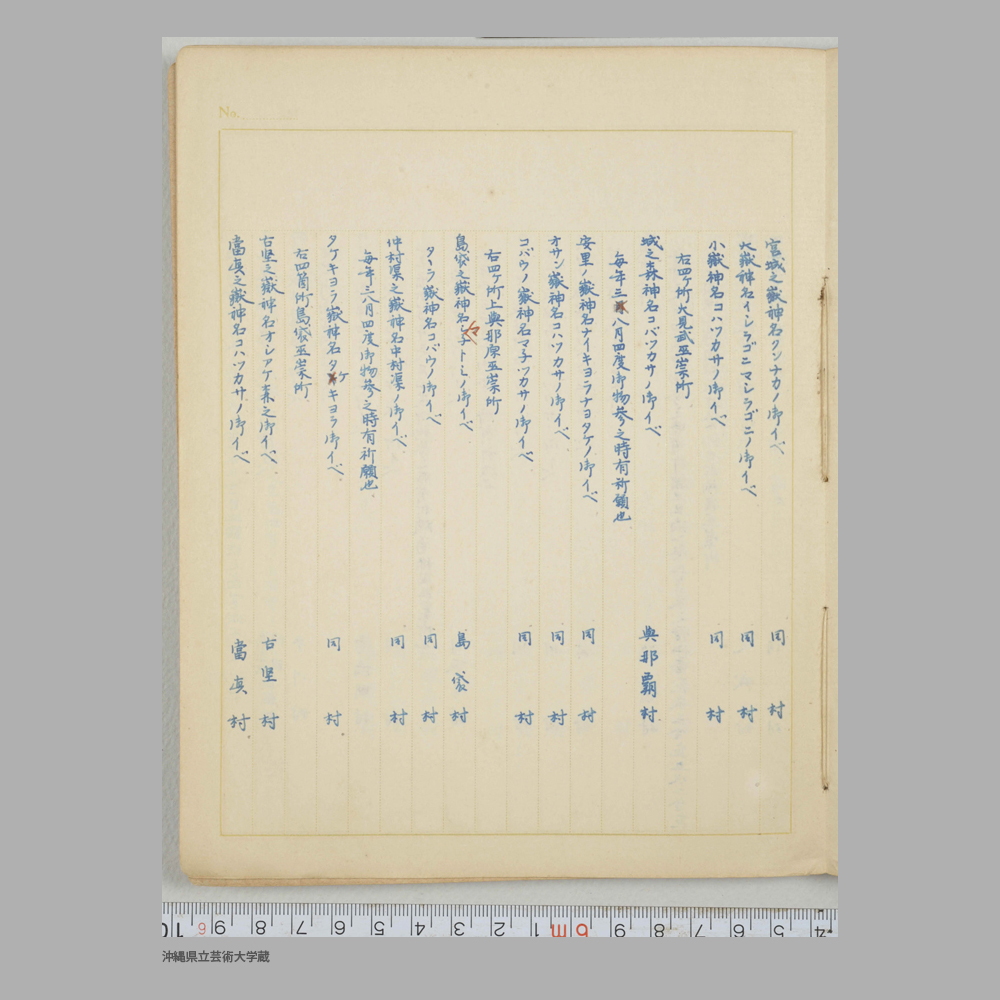 No.
宮城之嶽神名クンナカノ御イベ 同 村
大嶽神名イシラゴニマシラゴニノ御イベ 同 村
小嶽神名コハツカサノ御イベ 同 村
右四ケ所大見武巫崇所
城之森神名コバツカサノ御イベ 與那覇村
毎年三八月四度御物參之時有祈願也
安里ノ嶽神名ナイキヨラナヨタケノ御イベ 同 村
オサン嶽神名コハツカサノ御イベ 同 村
コバウノ嶽神名マ子ツカサノ御イベ 同 村
右四ケ所上與那原巫崇所
島袋之嶽神名 トミノ御イベ 島袋村
タヽラ嶽神名コバウノ御イベ 同 村
仲村渠之嶽神名中村渠ノ御イベ 同 村
毎年三八月四度御物參之時有祈願也
タケキヨラ嶽神名タケキヨラ御イベ 同 村
右四箇所島袋巫崇所
古堅之嶽神名オシアケ森之御イベ 古堅村
當眞之嶽神名コハツカサノ御イベ 當眞村
沖縄県立芸術大学蔵